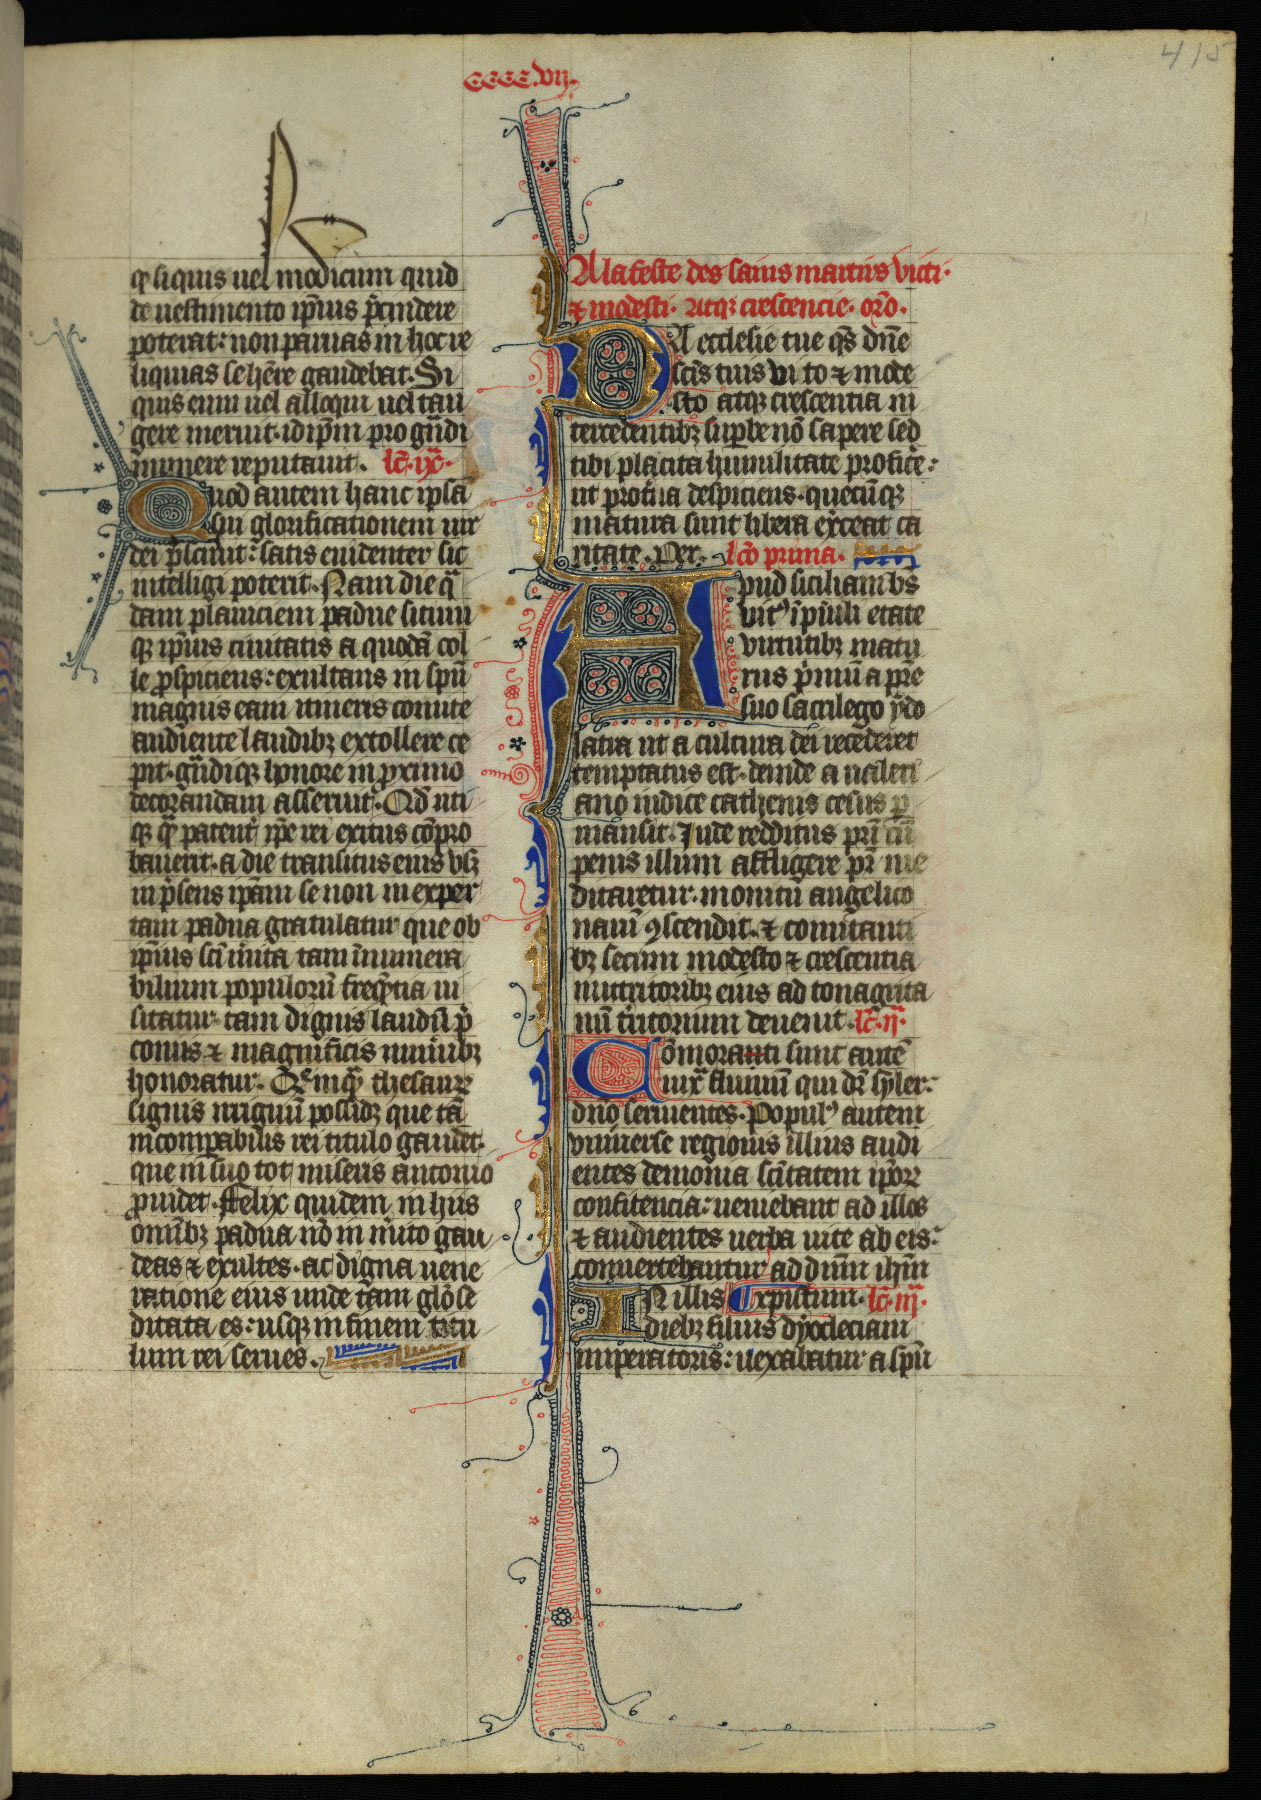 CCCC.vij.
415
qͥ liquis uel modicum quid
de uestimento ip̄ius p̄cindere
poterat: non paruas in hoc re
liquias se hēre gaudebat. Si
quis enim uel alloqui uel tan
gere meruit. id ip̄m pro gn̄di
munere reputauit. lc̄. ix.
Quod autem hanc ipsa
sui glorificationem uir
dei p̄sciuit: satis euidenter sic
intelligi poterit. Nam die qͣ
dam planiciem padue situm
qꝫ ip̄ius ciuitatis a quodā col
le ꝓspiciens: exultans in spū
magnis eam itineris comite
audiente laudibꝫ extollere ce
pit. gn̄diqꝫ honore in ꝓximo
decorandam asseruit. Qd̄ uti
qꝫ qͥ patent̉ ip̄e rei exitus cōpro
bauerit. a die transitus eius vsqꝫ
in p̄sens ip̄am se non in exper
tam padua gratulatur que ob
ip̄ius sc̄i m̉ita tam innumera
bilium populorū freq̄ntia ui
sitatur. tam dignis laudū p̄
coniis ⁊ magnificis mun̉ibꝫ
honoratur. O inqͣ thesaurꝫ
lignis irriguū possidꝫ que tā
incomparabilis rei titulo gaudet.
que in suo tot miseris antonio
ꝓuidet. Felix quidem in hiis
om̄ibꝫ padua nō in m̉ito gau
deas ⁊ exultes. ac digna uene
ratione eius unde tam glōse
ditata es: usqꝫ in finem titu
lum rei serues.
A la feste des sains martirs viti.
⁊ modesti. atqꝫ crescencie. orō.
DA ecclesie tue qs̄ dn̄e
sc̄is tuis vito ⁊ mode
sto atqꝫ crescentia in
tercedentibꝫ suꝑbe nō sapere sed
tibi placita humilitate proficē:
ut prot̉ua despiciens. quecūqꝫ
matura sunt libera ex̉ceat ca
ritate. Per. lc̄o prima.
Apud siciliam bs̄
vitꝰ ī pūili etate
virtutibꝫ matu
rus p̉mū a pr̄e
suo sacrilego ydo
latra ut a cultura dei recederet
temptatus est. deinde a ualeri
ano iudice cathenis cesus ꝑ
mansit. Inde redditus pr̄i cū
penis illum affligere pr̄ me
ditaretur. monitu angelico
nauī ꝯscendit. ⁊ comitanti
bꝫ secum modesto ⁊ crescentia
nutritoribꝫ eius ad tonagrita
nū t̉ritorium deuenit. lc̄. ij.
Cōmoranti sunt autē
iuxͣ fluuiū qui dr̄ syler:
dn̄o seruientes. Populꝰ autem
vniuerse regionis illius audi
entes demonia sc̄itatem ip̄orꝫ
confitencia: ueniebant ad illos
⁊ audientes uerba uite ab eis:
conuertebantur ad dn̄m ihm̄
xpistum. lc̄. iij.
IN illis
diebꝫ filius dyocleciani
imperatoris: uexabatur a spū